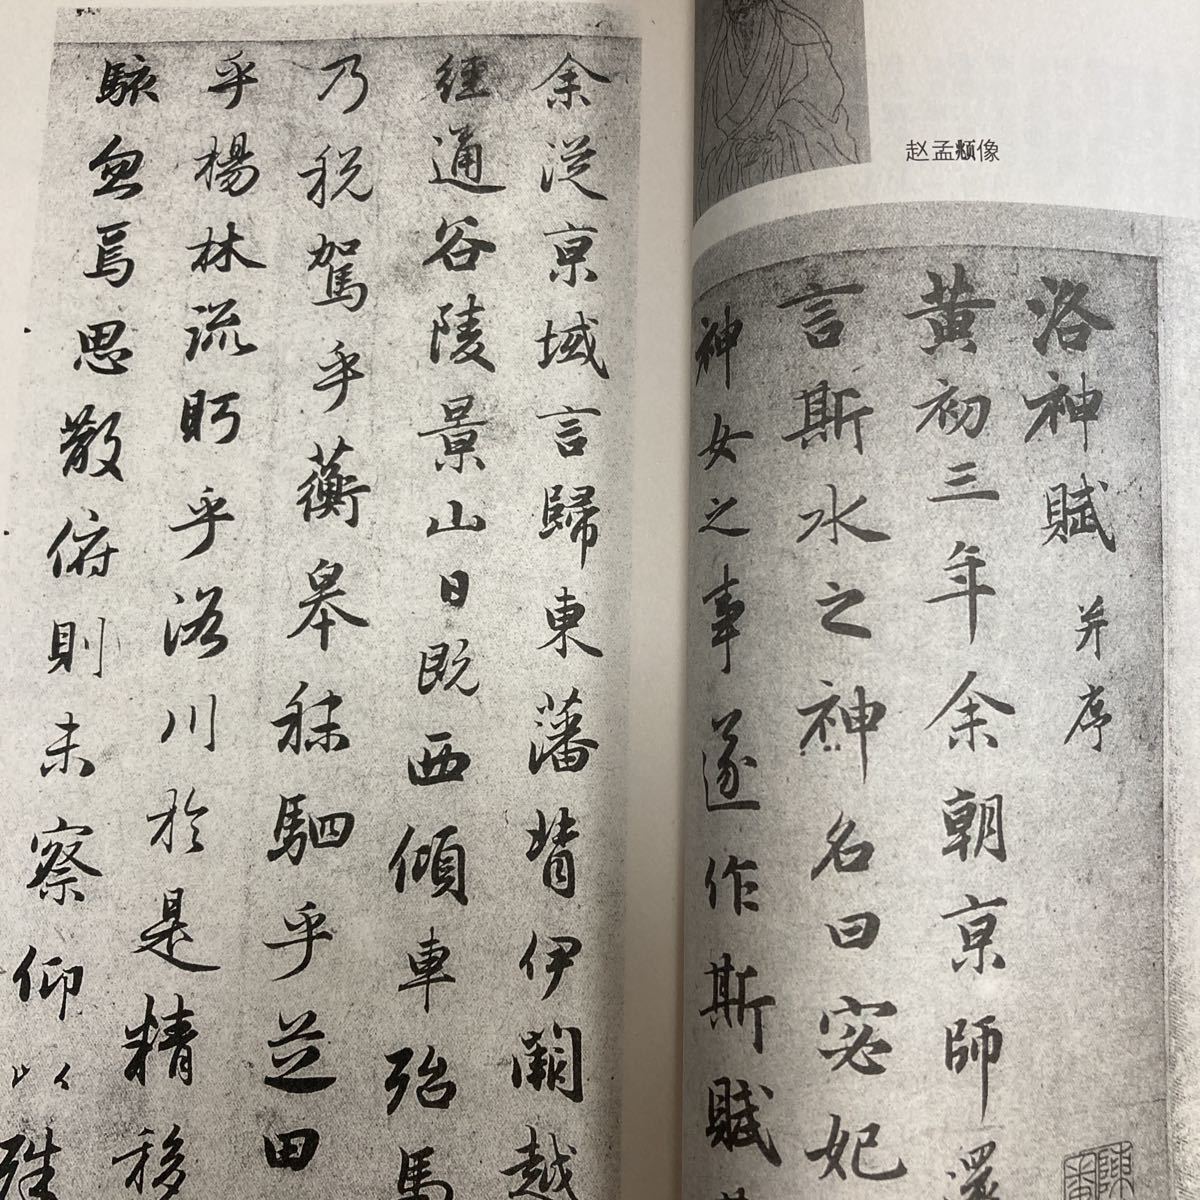 赵孟頫像
洛神賦 并序
黄初三年余朝京師還
言斯水之神名曰宓妃
神女之事遂作斯賦其
余從京域言歸東藩背伊闕越
經通谷陵景山日既西傾車殆馬
乃税駕乎蘅皋秣駟乎芝田
乎楊林流眄乎洛川於是精移
駭忽焉思散俯則未察仰以殊